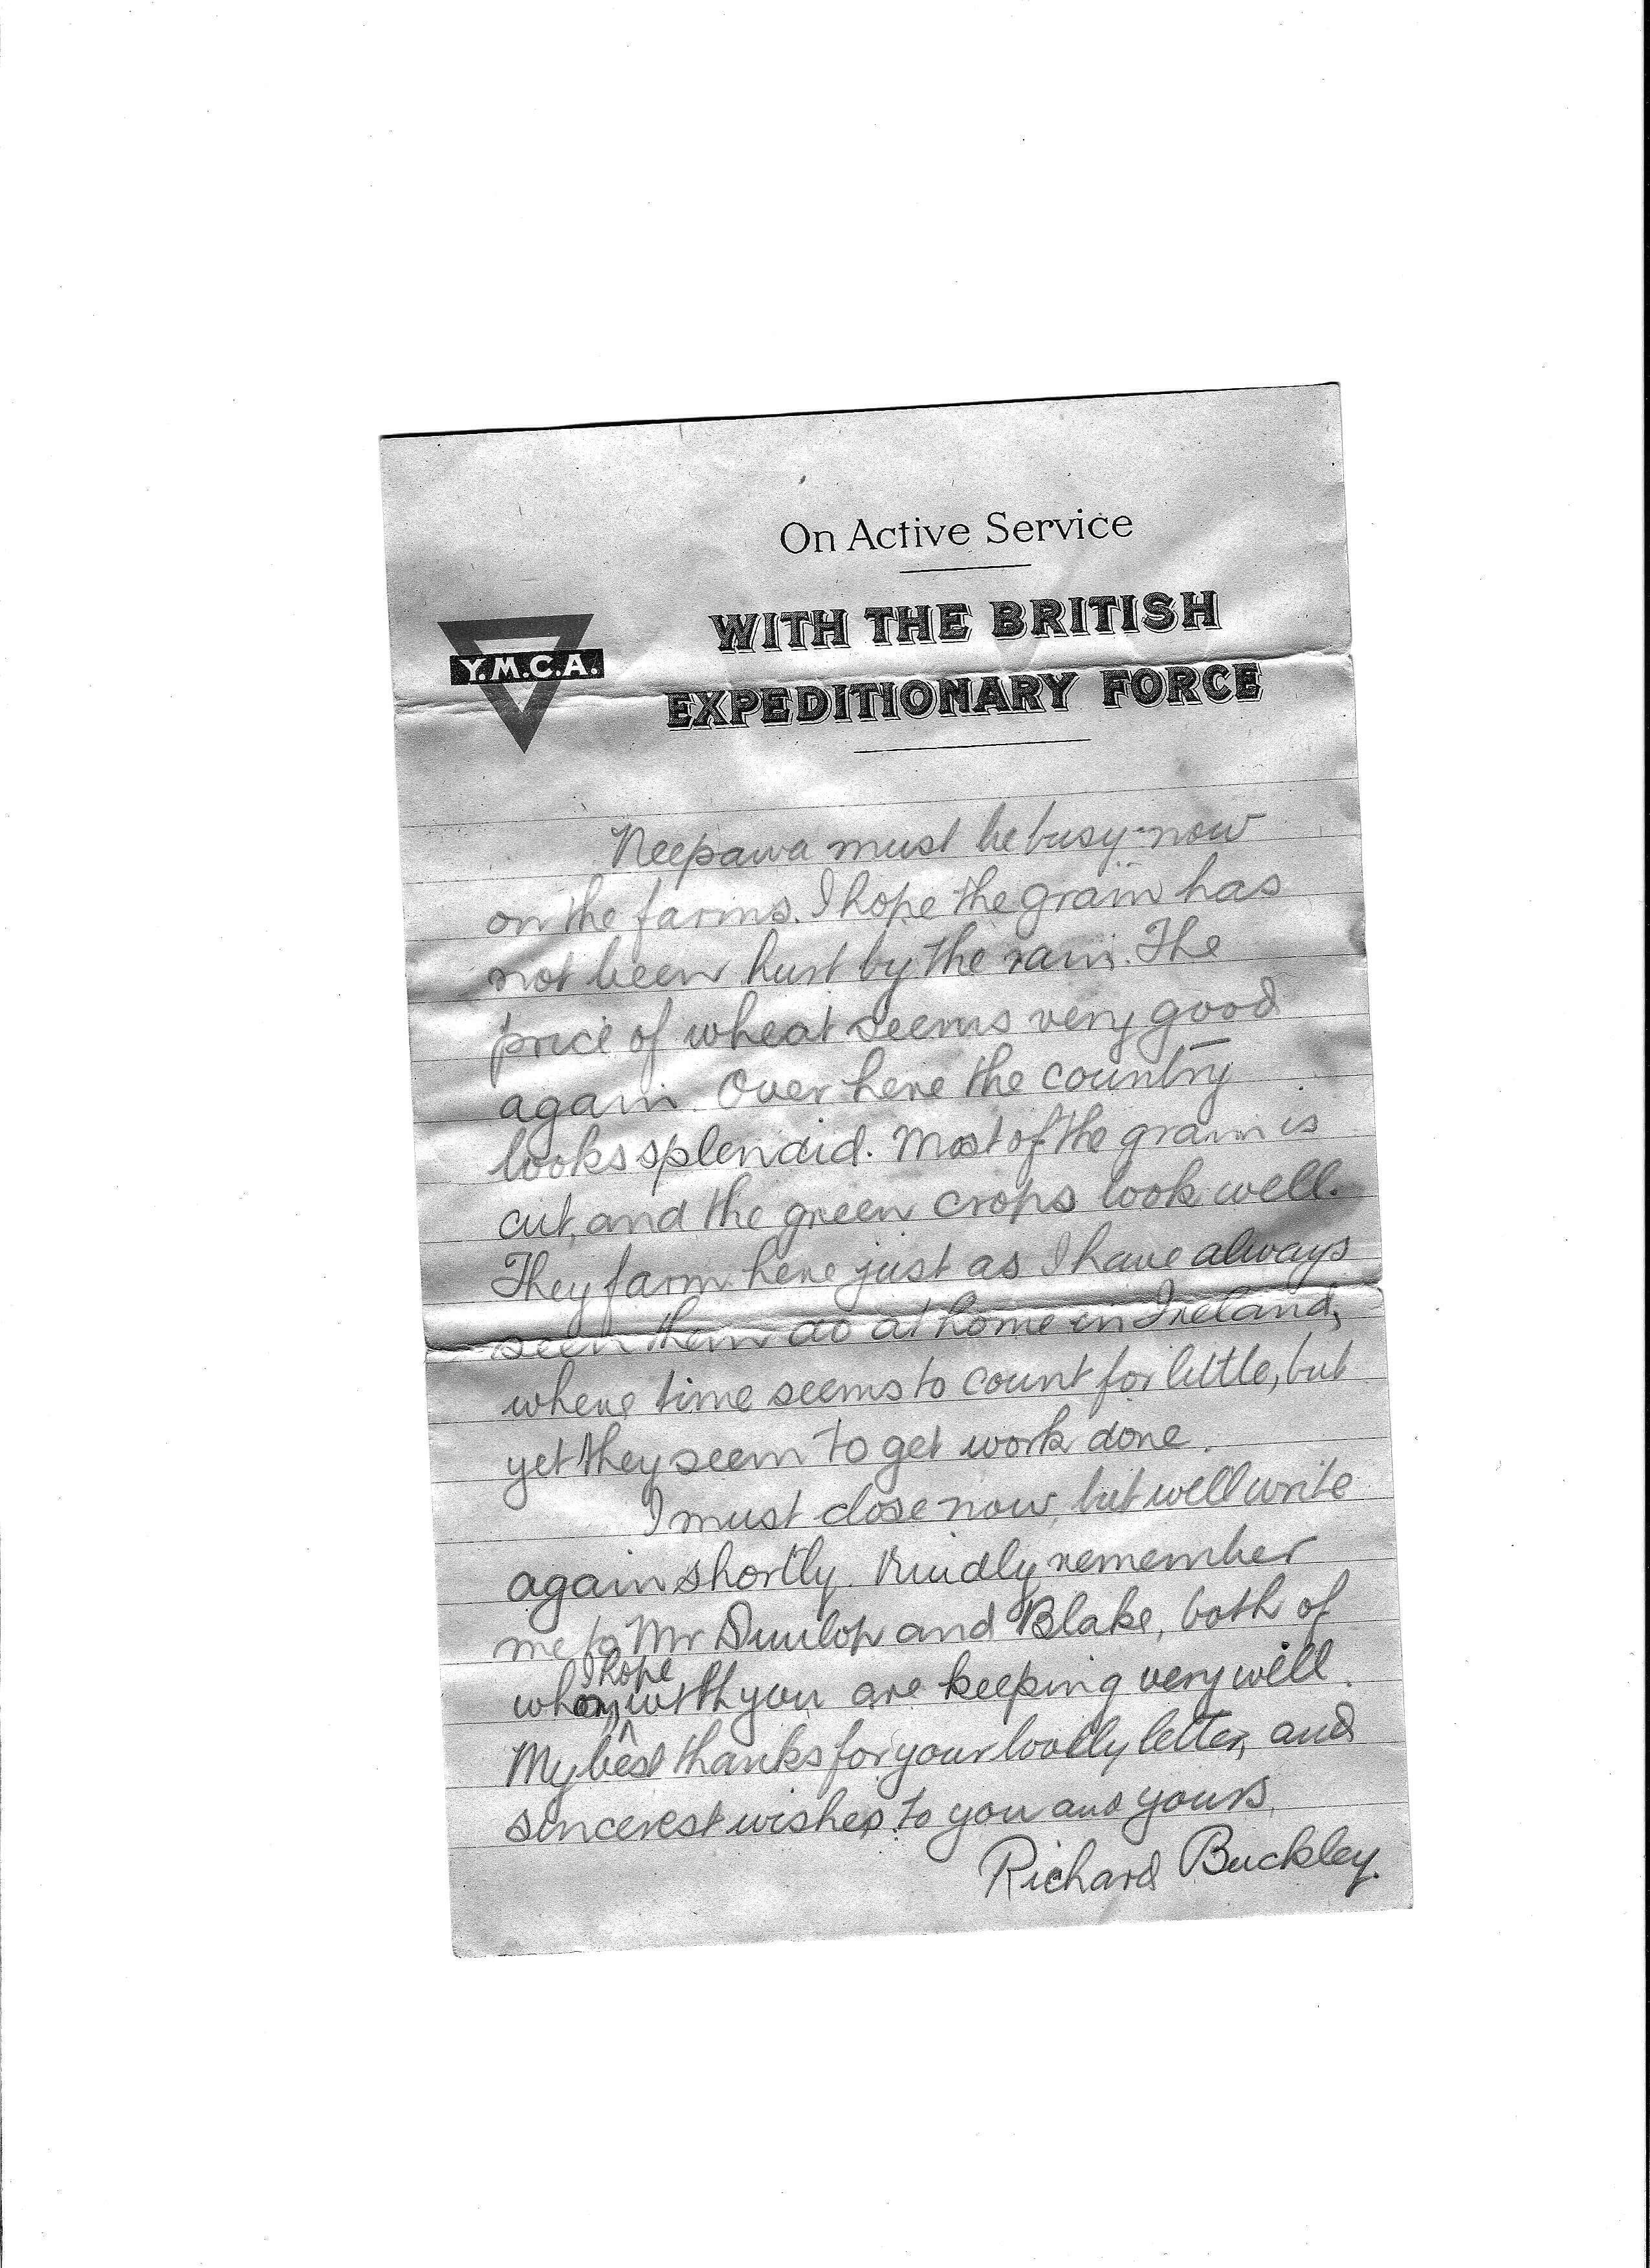 On Active Service
WITH THE BRITISH
Y.M.C.A.
EXPEDITIONARY FORCE
Neepawa must be busy now
on the farms. I hope the grain has
not been hurt by the rain. The
price of wheat seems very good
again. Over here the country
looks splendid. Most of the grain is
cut, and the green crops look well.
They farm here just as I have always
seen them do at home in Ireland,
where time seems to count for little, but
yet they seem to get work done.
I must close now, but will write
again shortly. Kindly remember
me to Mr Dunlop and Blake, both of
whom I hope with you are keeping very well.
My best thanks for your letter, and
sincerest wishes to you and yours.
Richard Buckley.